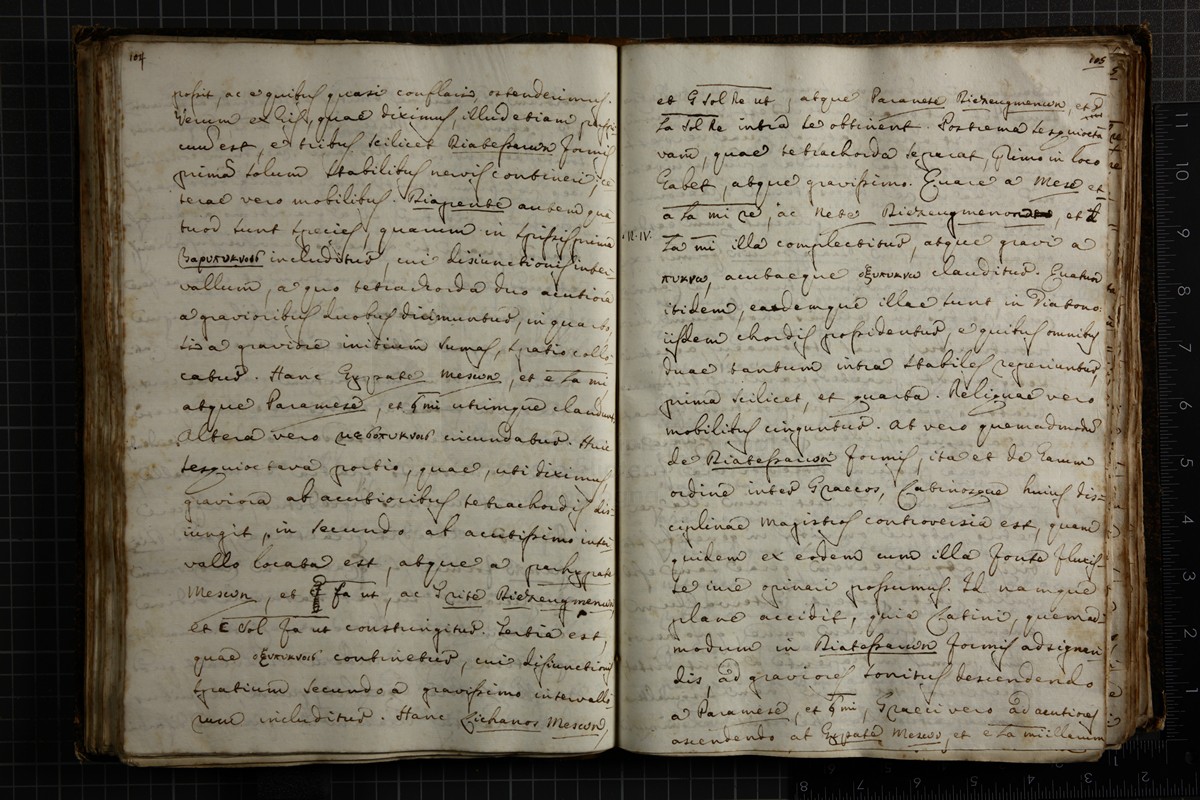 104
possit, ac e quibus quasi conflans ostenderimus.
Verum ex his, quae diximus, illud etiam
cuum est, e tribus scilicet Diatessaron formis
primā solum stabilibus nervis contineri, ce
terae vero mobilibus. Diapente autem qua
tuor sunt species, quarum in spissis prima
βαρυπυκνοις includitur, cui disiunctionis inter
vallum, a quo tetrachorda duo acutiora
a gravioribus duobus dirimuntur, in quar
tis a graviore initium sumas, spatio collo
catur. Hanc Hypate Meson, et e la mi
atque Paramese, et ♮ mi utrimque claudunt.
Altera vero μεσοπυκνοις circundatur. Huic
sesquioctava portio, quae, uti diximus,
graviora ab acutioribus tetrachordis dis=
iungit, in secundo ab acutissimo inter
vallo locata est, atque a parhypate
Meson, et fa ut, ac Trite Diezeugmenon,
et C sol fa ut constringitur. Tertia est,
quae οξυπυκνοις continetur, cui disiunctionis
spatium secundo a gravissimo intervallo
rum includitur. Hanc Lichanos Meson,
105
et G sol re ut, atque Paranete Diezeugmenon, et
la sol re intra se obtinent. Postrema sesquiocta
vam, quae tetrachorda separat, primo in loco
habet, atque gravissimo. Quare a Mese et
a la mi re, ac Nete Diezeugmenon, et
la mi illa complectitur, atque gravi a
πυκνω, acutaeque οξυπυκνω clauditur. Quatuor
itidem, eaedemque illae sunt in Diatono
iisdem chordis possidentur, e quibus omnibus
duae tantum intra stabiles reperiuntur,
prima scilicet, et quarta. Reliquae vero
mobilibus cinguntur. At vero quemadmodum
de Diatessaron formis, ita et de harum
ordine inter Graecos, Latinosque huius dis=
ciplinae magistros controversia est, quam
quidem ex eodem cum illa fonte fluxis
se iure opinari possumus. Id namque
plane accidit, quia Latini, quemad
modum in Diatessaron formis adsignan
dis, ad graviores sonitus descendendo
a Paramese, et ♮ mi, Graeci vero ad acutiores
ascendendo ab Hypate Meson, et e la mi illarum